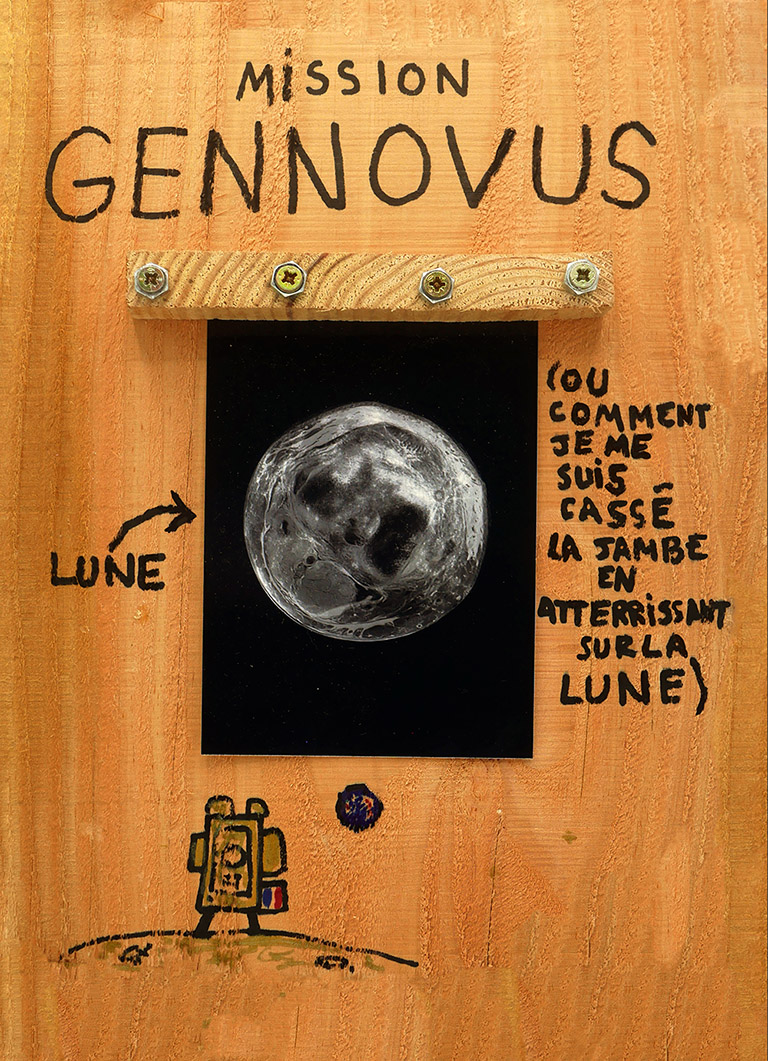 MiSSION
GENNOVUS
(OU
COMMENT
JE ME
SUIS
CASSÉ
LA JAMBE
EN
ATTERRiSSANT
SUR LA
LUNE)
LUNE